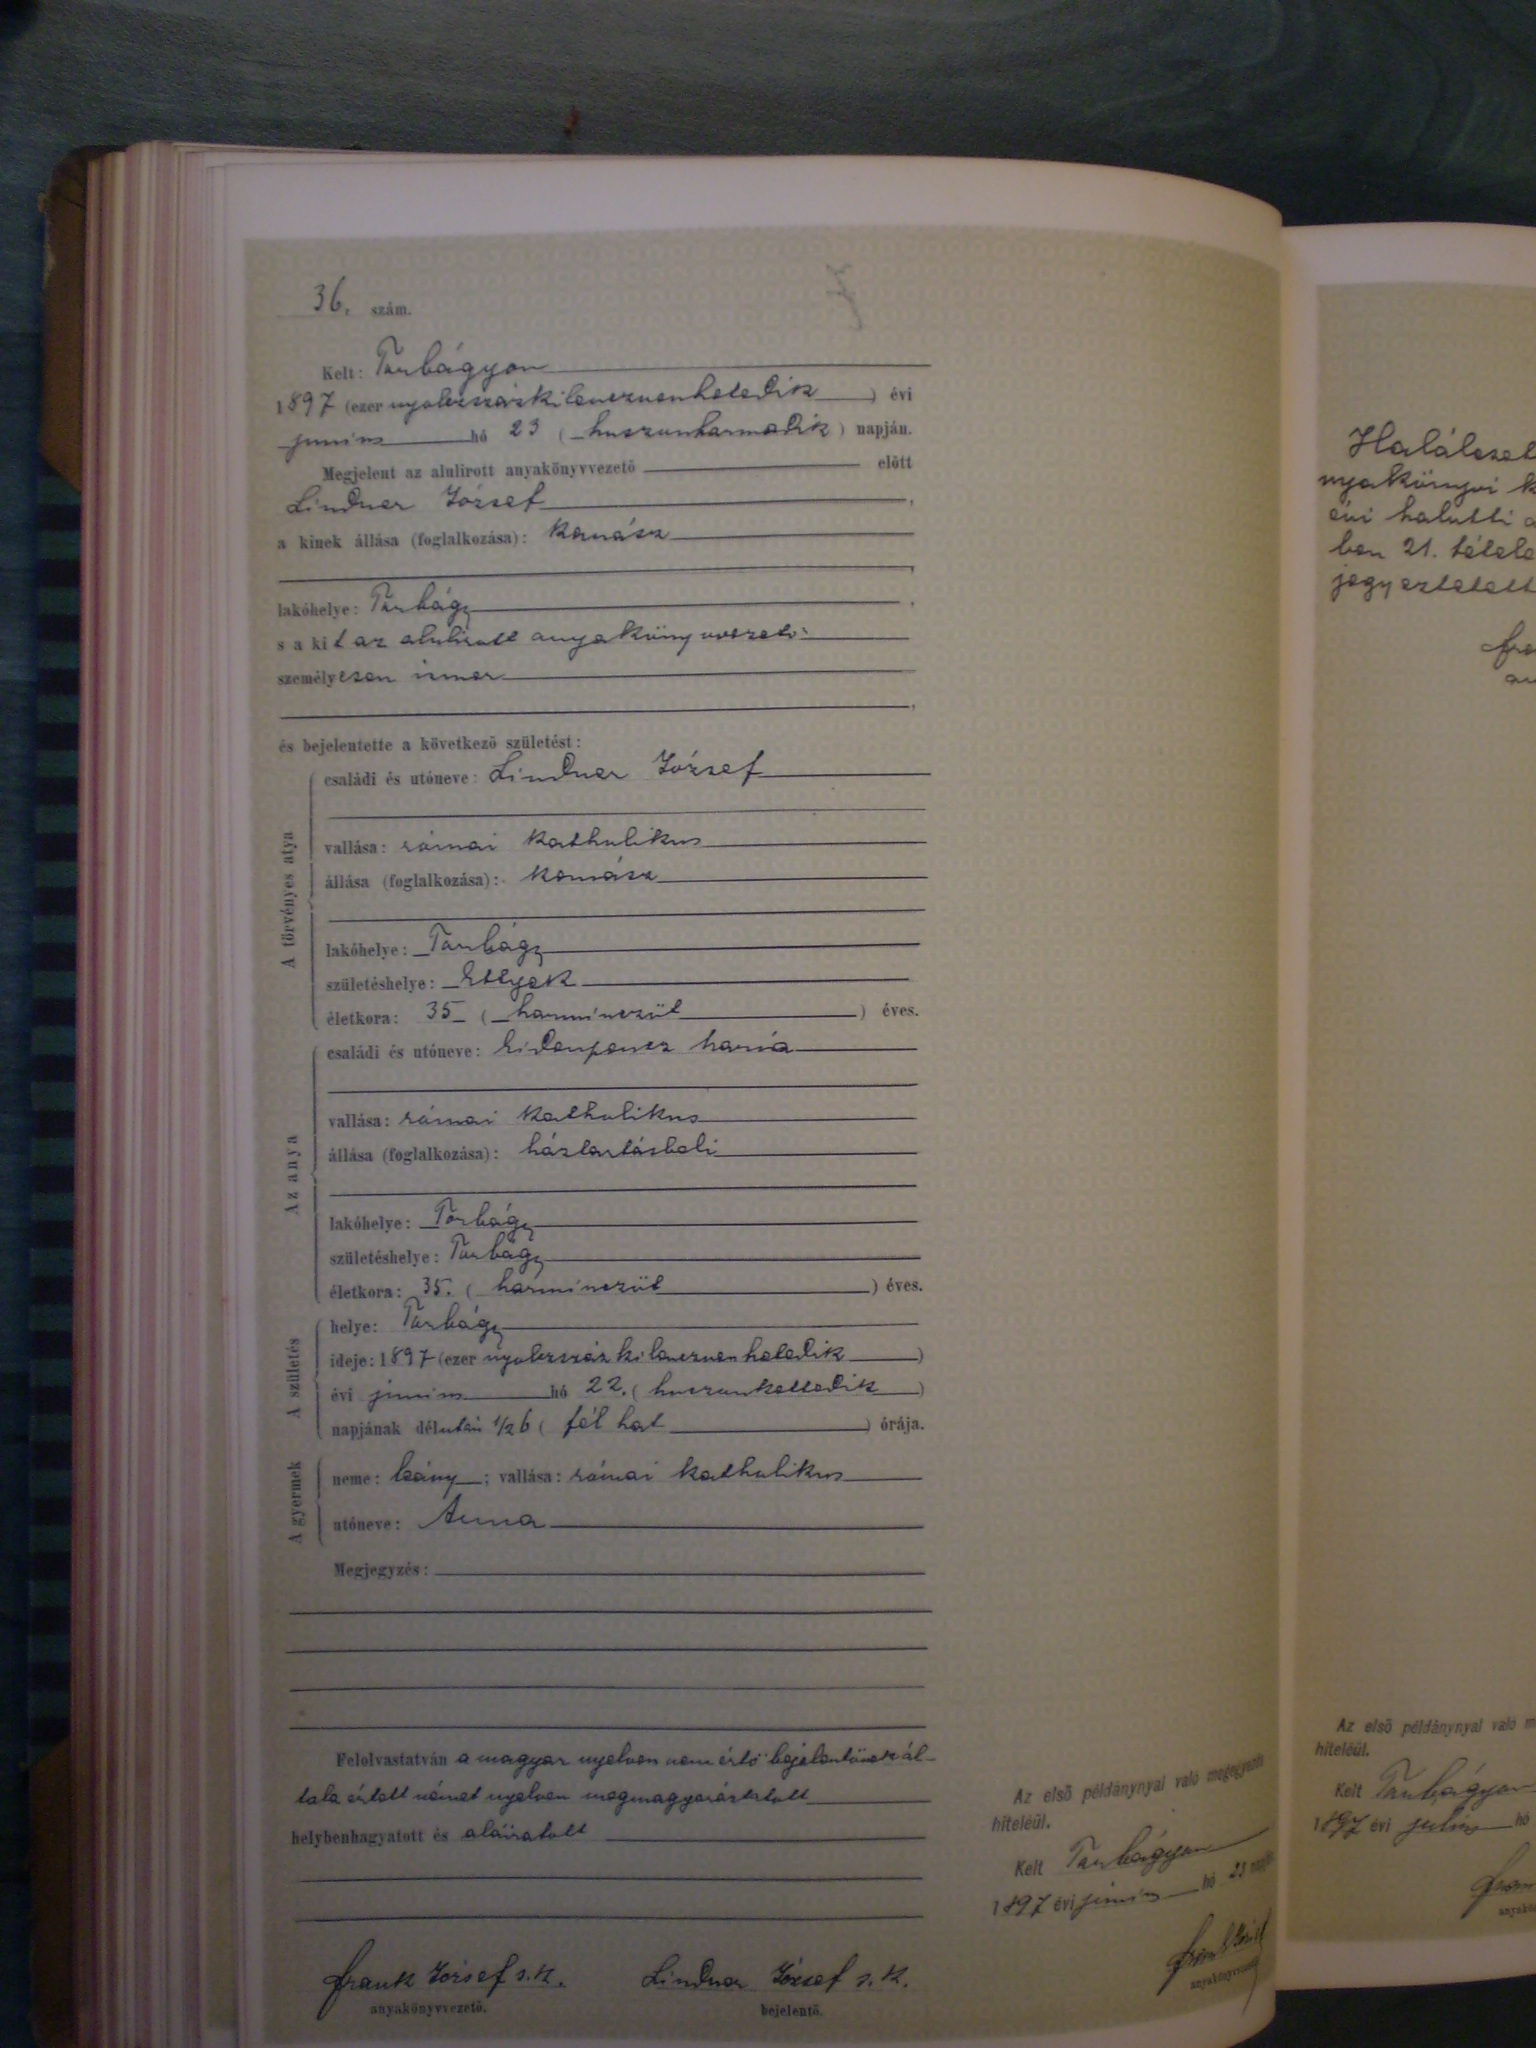 36. szám.
Kelt: Torbágyon
1897 (ezer nyolczszázkilenczvenhetedik) évi
junius hó 23 (huszonharmadik) napján.
Megjelent az alulirott anyakönyvvezető előtt
Lindner József,
a kinek állása (foglalkozása): kanász
,
lakóhelye: Torbágy,
s a kit az alulirott anyakönyvvezető
személyesen ismer
,
és bejelentette a következő születést:
A törvényes atya
családi és utóneve: Lindner József
vallása: római katholikus
állása (foglalkozása): kanász
lakóhelye: Torbágy
születéshelye: Etyek
életkora: 35 (harminczöt) éves.
Az anya
családi és utóneve: Mária
vallása: római katholikus
állása (foglalkozása): háztartásbeli
lakóhelye: Torbágy
születéshelye: Torbágy
életkora: 35. (harminczöt) éves.
A születés
helye: Torbágy
ideje: 1897 (ezer nyolczszázkilenczvenhetedik)
évi junius hó 22. (huszonkettedik)
napjának délután 1/2 6 (fél hat) órája.
A gyermek
neme: leány; vallása: római katholikus
utóneve: Anna
Megjegyzés:
Felolvastatván a magyar nyelven nem értő bejelentőnek ál-
tala értett német nyelven megmagyaráztatott
helybenhagyatott és aláiratott
Frank József s.k. Lindner József s.k.
anyakönyvvezető. bejelentő.
Az első példánynyal való megegyezés
hiteléül.
Kelt Torbágyon
1897 évi junius hó 23 napján
Frank József
anyakönyvvezető
Haláleset
nyakönyvi k
évi halotti a
ban 21. tétele
jegyeztetett
Fra
an
Az első példánynyal való m
hiteléül.
Kelt Torbágyon
1897 évi julius hó
Fran
anyakö